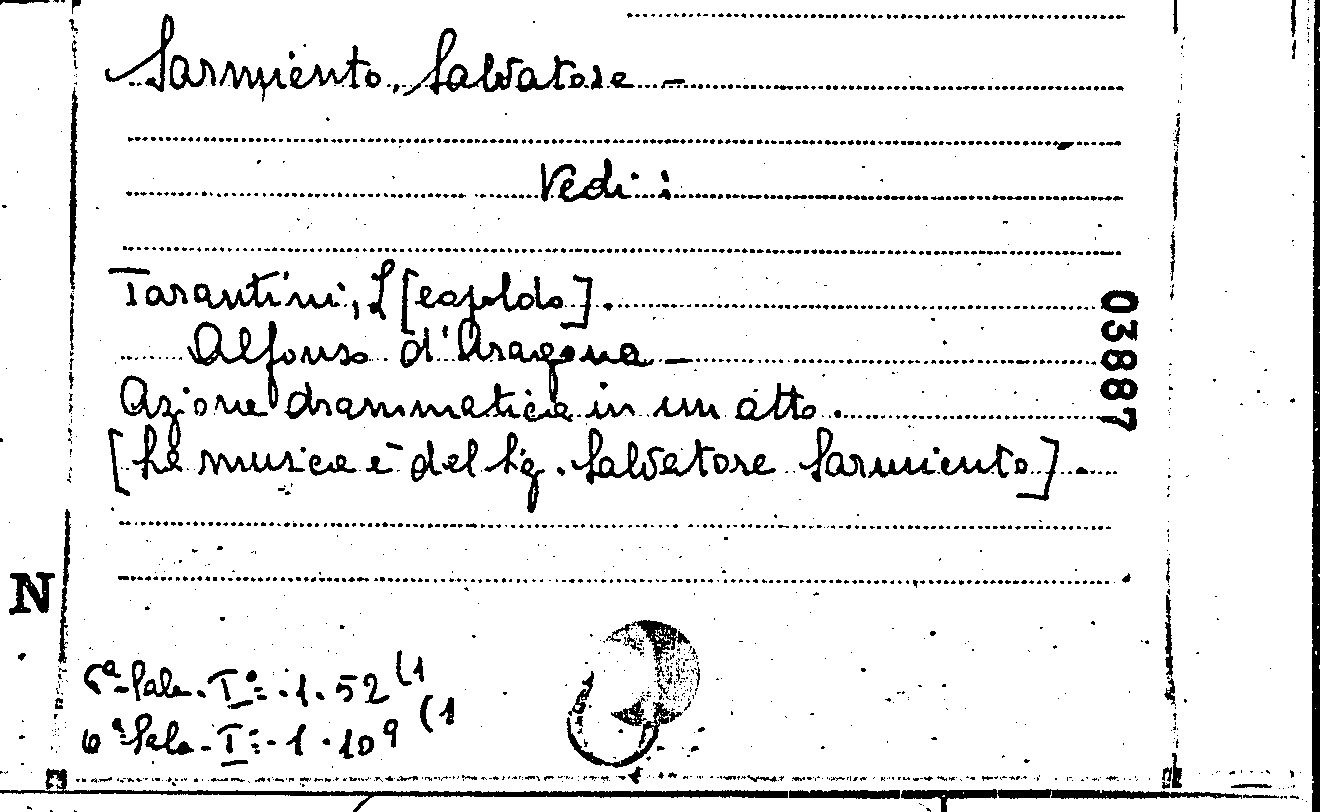 Sarmiento, Salvatore -
Vedi:
Tarantini, L[eopoldo].
Alfonso d'Aragona -
Azione drammatica in un atto.
[La musica è del Sig. Salvatore Sarmiento].
03887
N
6ª Sala. I°. 1. 52 (1
6ª Sala. I°. 1. 109 (1